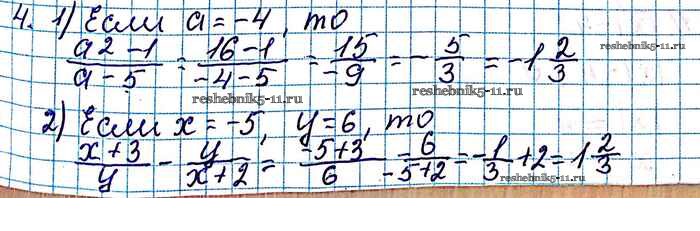 4. 1) Если a = -4, то
reshebnik5-11.ru
(a2 - 1)/(a - 5) = (16 - 1)/(-4 - 5) = 15/(-9) = -5/3 = -1 2/3
reshebnik5-11.ru
reshebnik5-11.ru
2) Если x = -5, y = 6, то
(x + 3)/y - y/(x + 2) = (-5 + 3)/6 - 6/(-5 + 2) = -1/3 + 2 = 1 2/3
reshebnik5-11.ru